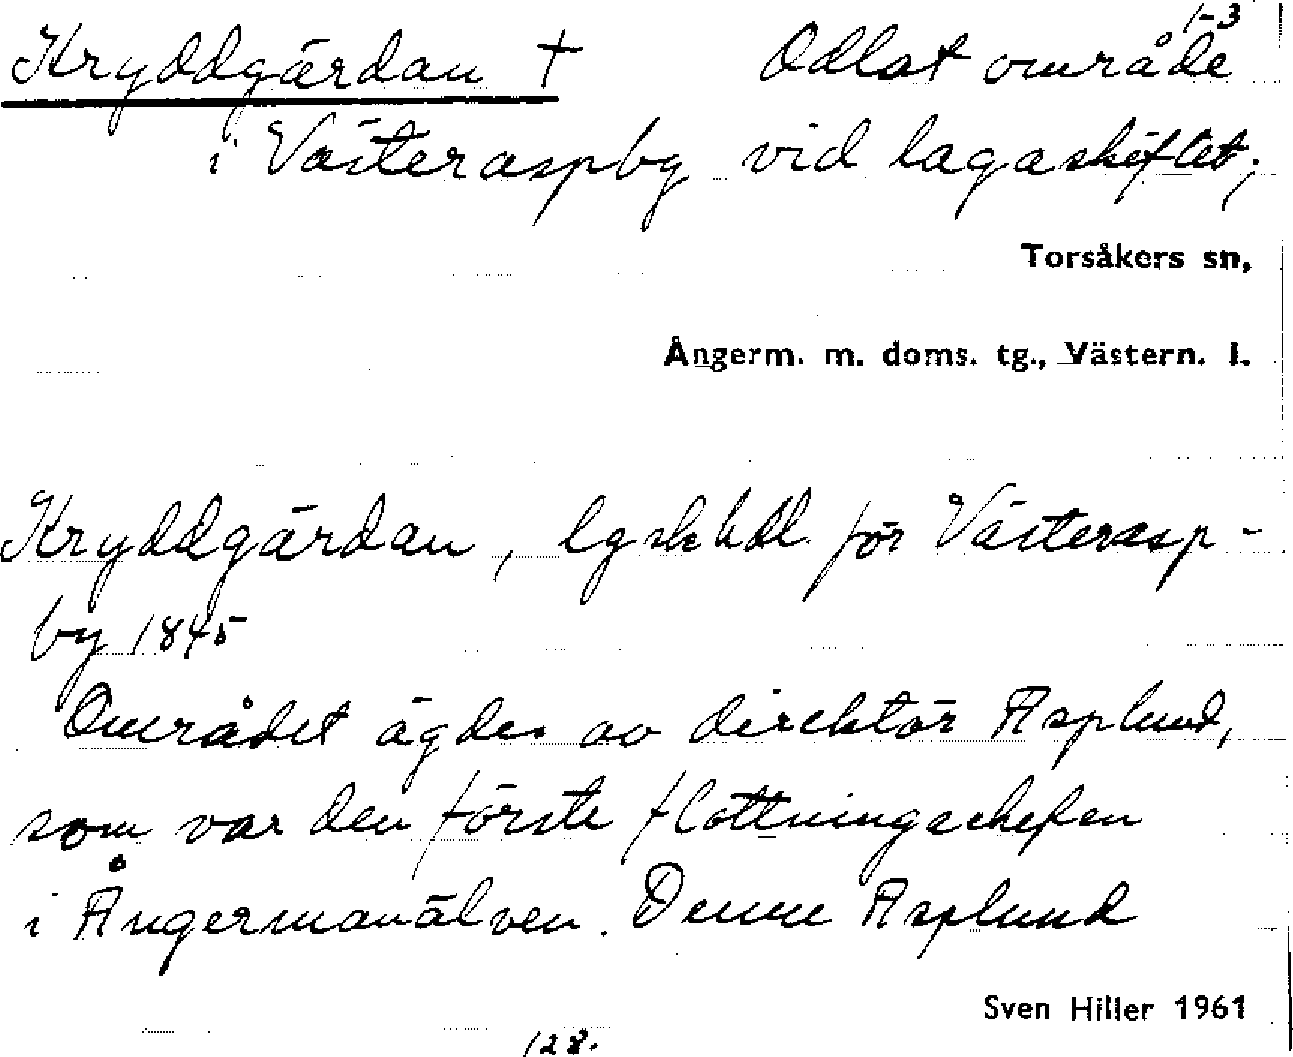 1-3
Kryddgärdan † Odlat område
i Västeraspby vid lagaskiftet;
Torsåkers sn,
Ångerm. m. doms. tg., Västern. l.
Kryddgärdan, lgskhdl. för Västerasp-
by 1845
Området ägdes av direktör Asplund,
som var den förste flottningschefen
i Ångermanälven. Denne Asplund
Sven Hiller 1961
128.